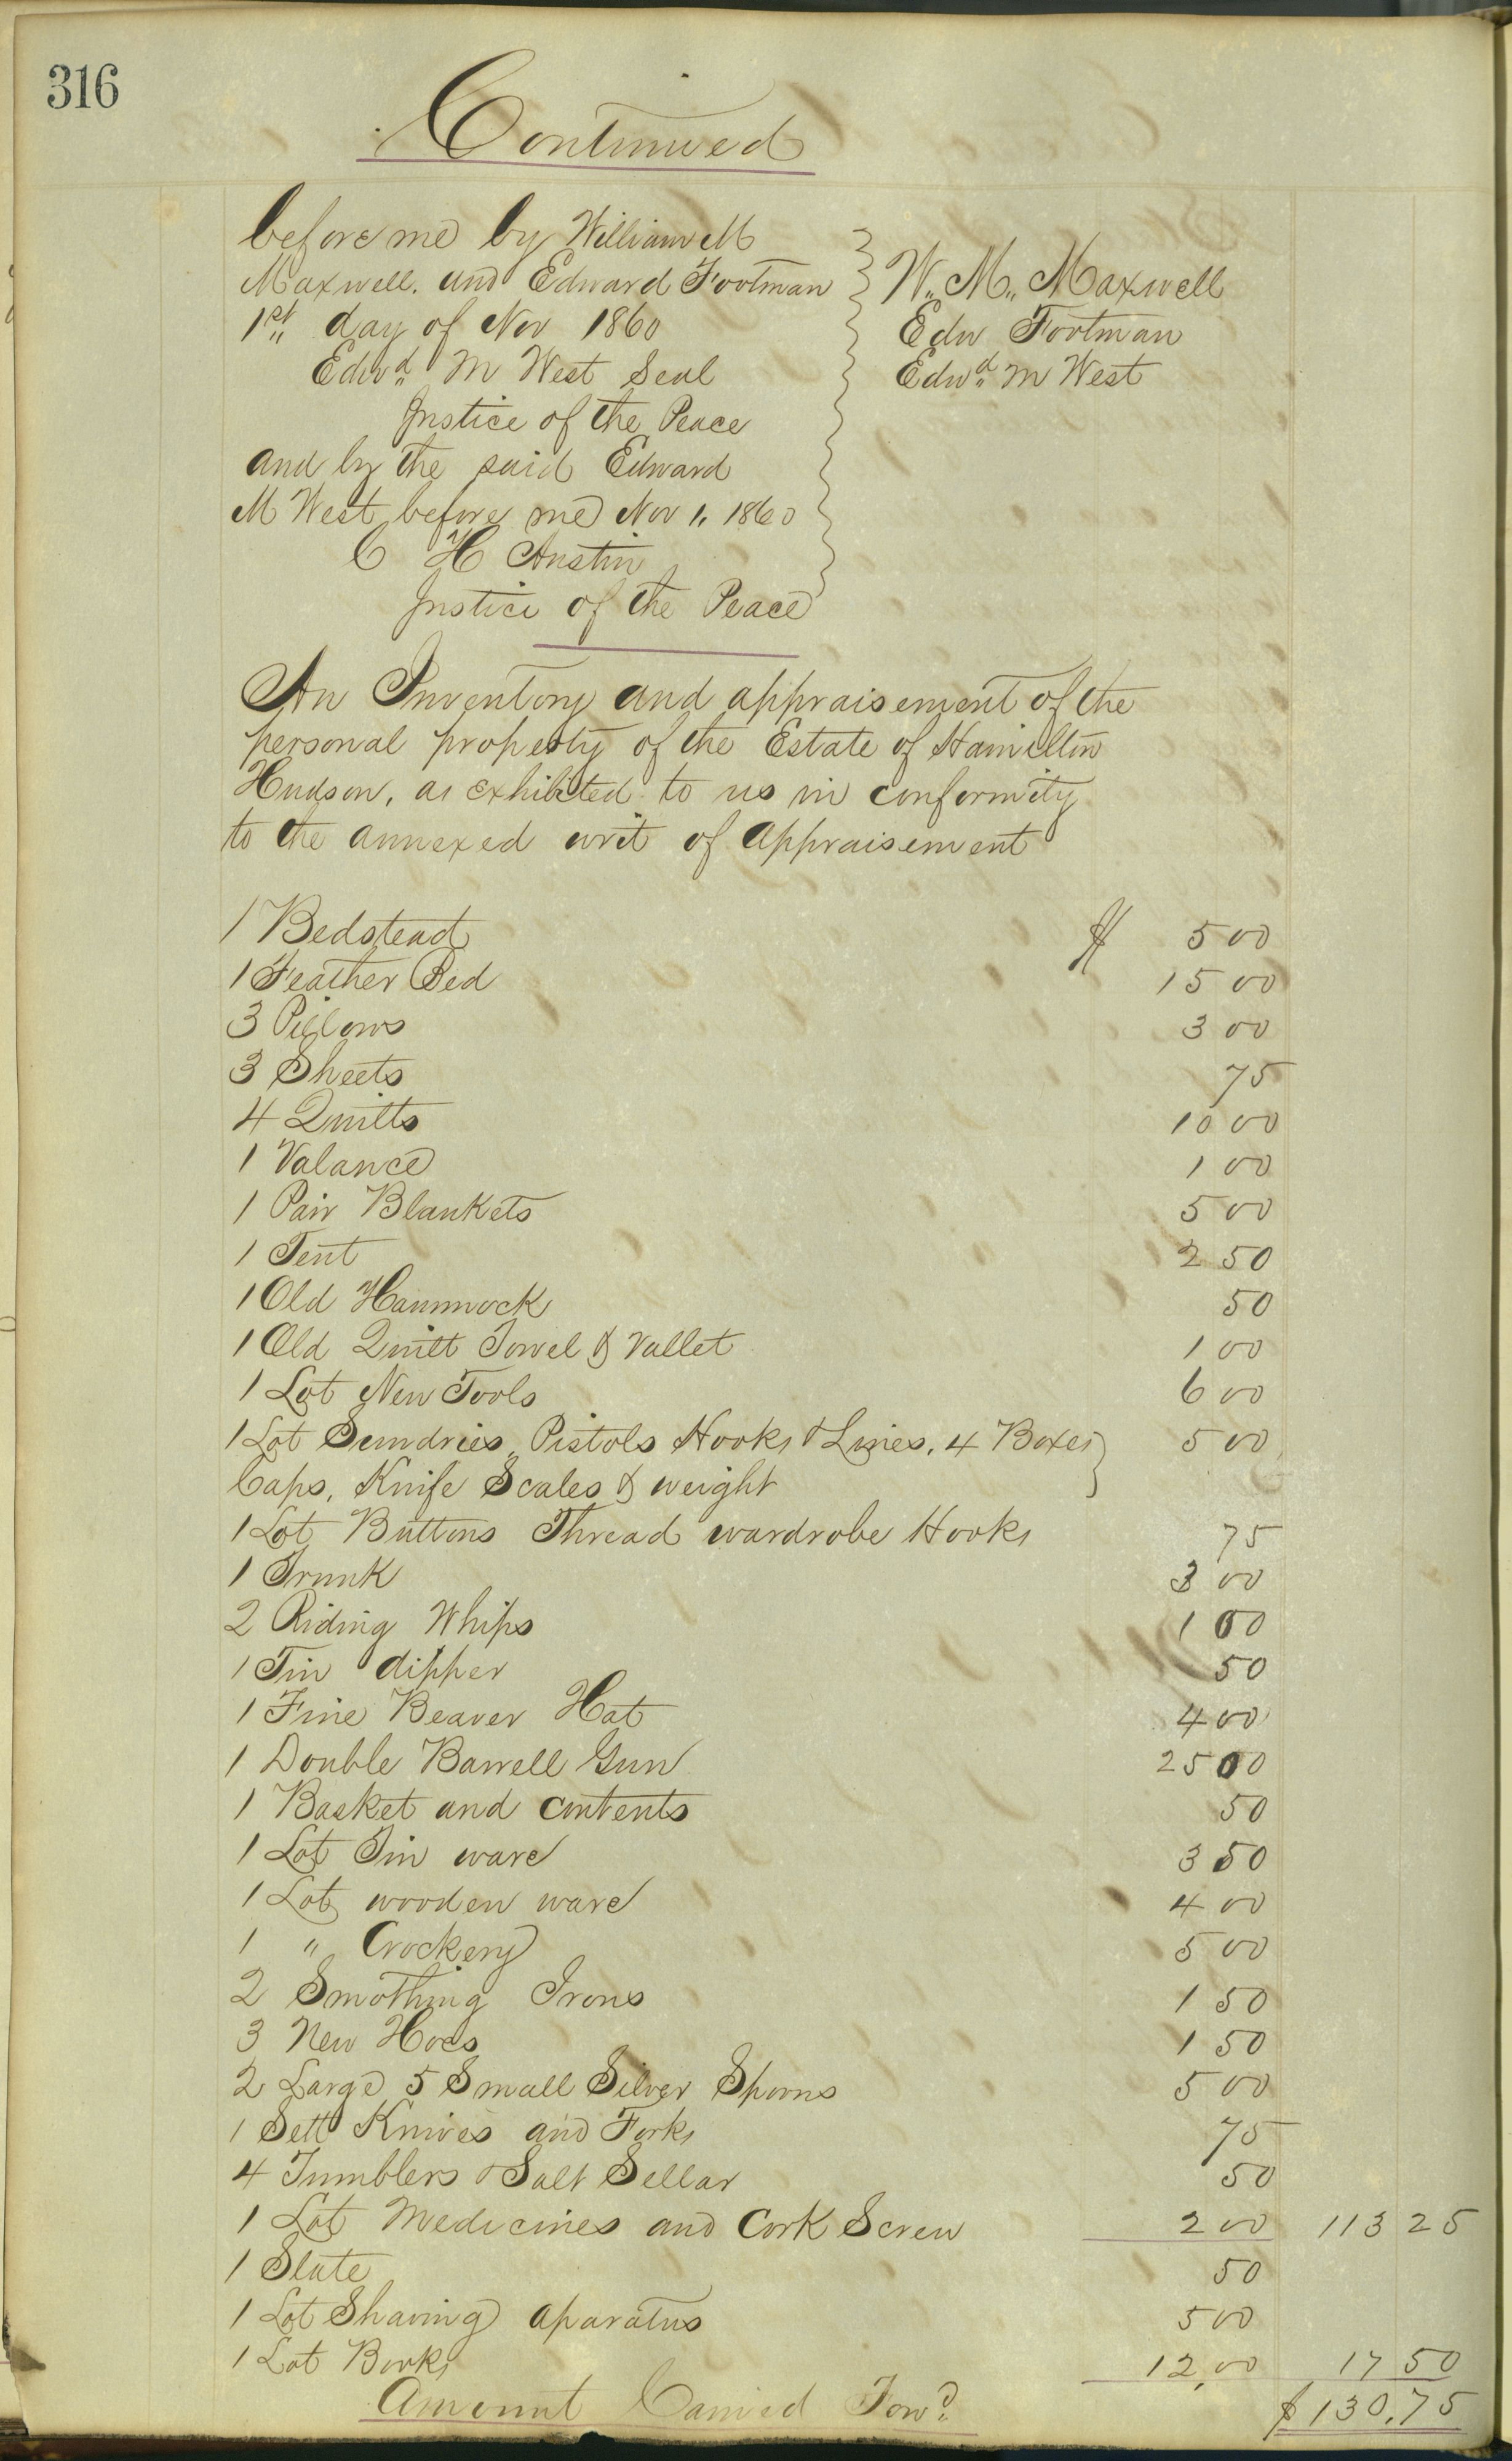 316
Continued
before me by William M
Maxwell. and Edward Footman
1st day of Nov 1860
Edwd M West Seal
Justice of the Peace
and by the said Edward
M West before me Nov 1. 1860
C H Austin
Justice of the Peace
W. M. Maxwell
Edw Footman
Edwd M West
An Inventory and appraisement of the
personal property of the Estate of Hamilton
Hudson, as exhibited to us in conformity
to the annexed writ of appraisement
1 Bedstead $ 5 00
1 Feather Bed 15 00
3 Pillows 3 00
3 Sheets 75
4 Quilts 10 00
1 Valance 1 00
1 Pair Blankets 5 00
1 Tent 2 50
1 Old Hammock 50
1 Old Quilt Towel & Vallet 1 00
1 Lot New Tools 6 00
1 Lot Sundries, Pistols Hooks & Lines, 4 Boxes 5 00
Caps, Knife Scales & weight
1 Lot Buttons Thread wardrobe Hooks 75
1 Trunk 3 00
2 Riding Whips 1 00
1 Tin dipper 50
1 Fine Beaver Hat 4 00
1 Double Barrell Gun 25 00
1 Basket and contents 50
1 Lot Tin ware 3 50
1 Lot wooden ware 4 00
1 " Crockery 5 00
2 Smothing Irons 1 50
3 New Hoes 1 50
2 Large 5 Small Silver Spoons 5 00
1 Sett Knives and Forks 75
4 Tumblers & Salt Sellar 50
1 Lot Medicines and Cork Screw 2 00 113 25
1 Slate 50
1 Lot Shaving aparatus 5 00
1 Lot Books 12,00 17 50
Amount Carried Forwd. $130.75